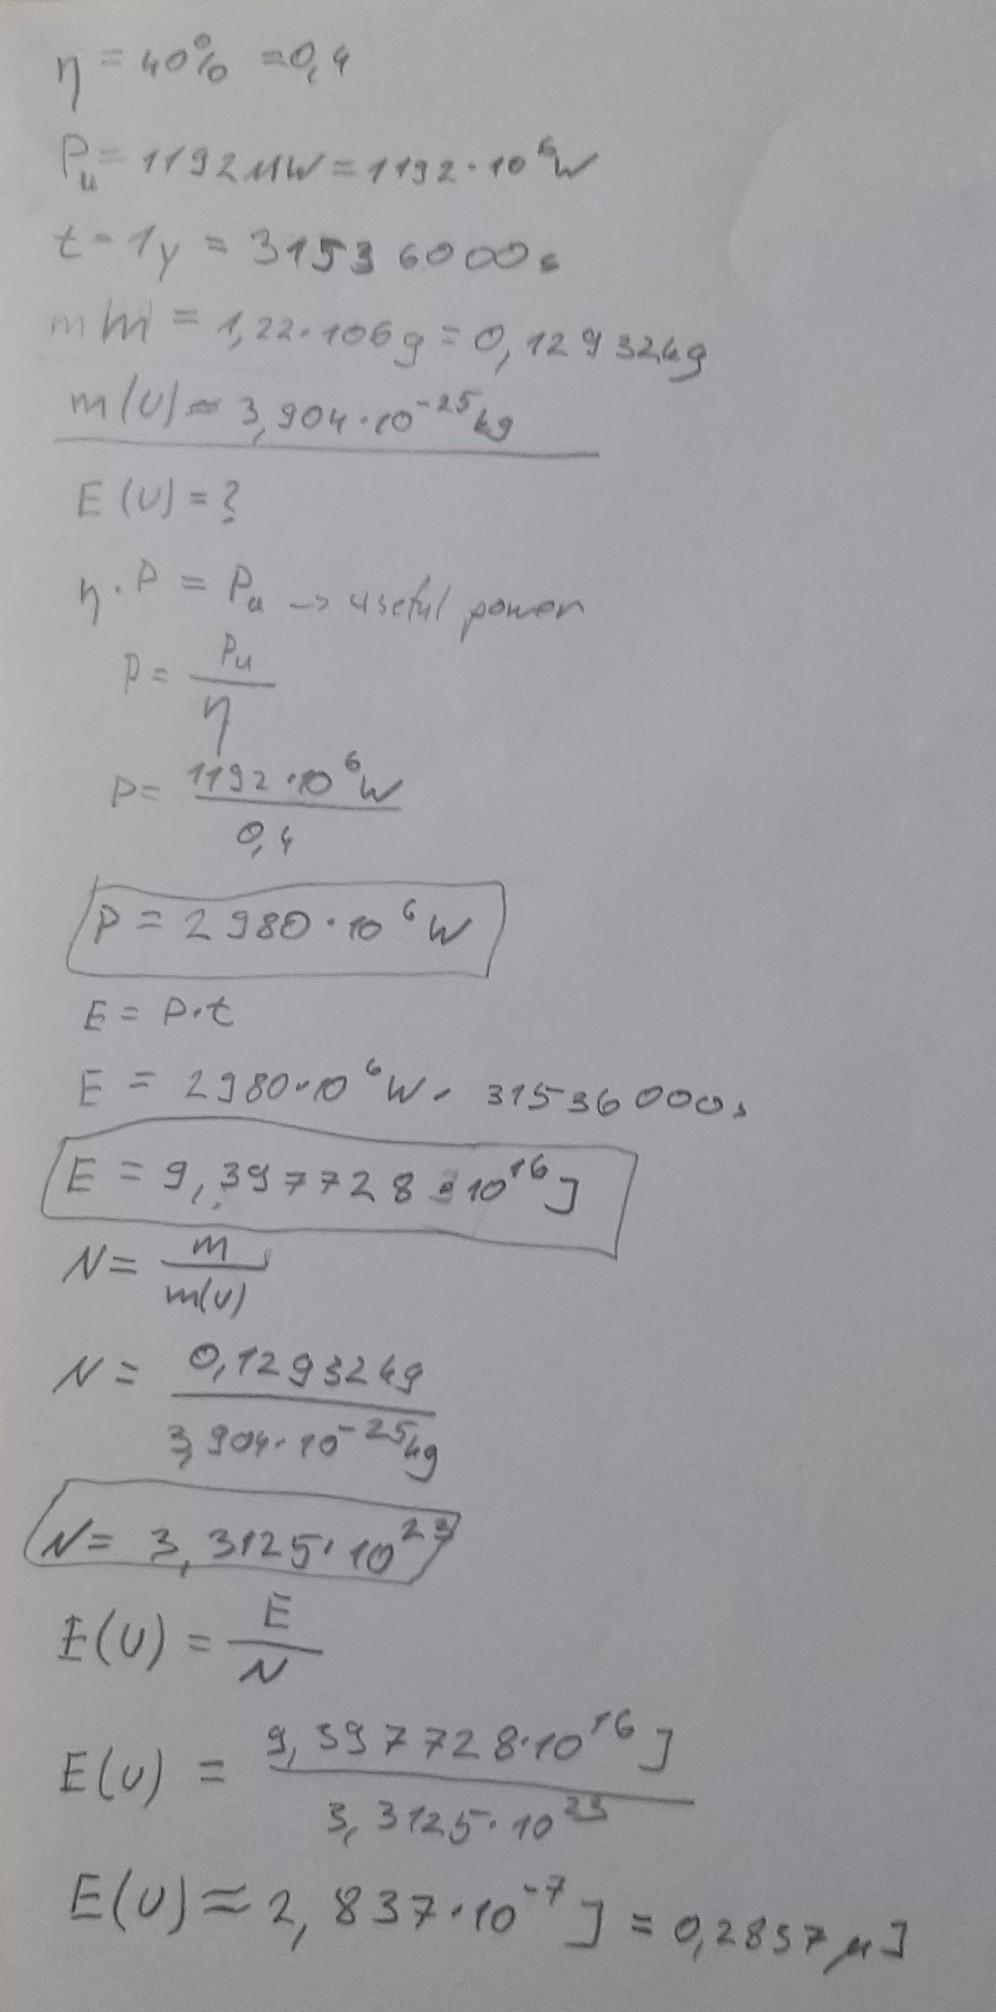 η = 40% = 0,4
Pu = 1192 MW = 1192·10⁶W
t = 1y = 31536000s
m = 1,22·106g = 0,12932kg
m(U) ≈ 3,904·10⁻²⁵kg
E(U) = ?
η·P = Pu -> useful power
P = Pu/η
P = 1192·10⁶W/0,4
P = 2980·10⁶W
E = P·t
E = 2980·10⁶W·31536000s
E = 9,397728·10¹⁶J
N = m/m(U)
N = 0,12932kg/3,904·10⁻²⁵kg
N = 3,3125·10²³
E(U) = E/N
E(U) = 9,397728·10¹⁶J/3,3125·10²³
E(U) ≈ 2,837·10⁻⁷J = 0,2837μJ